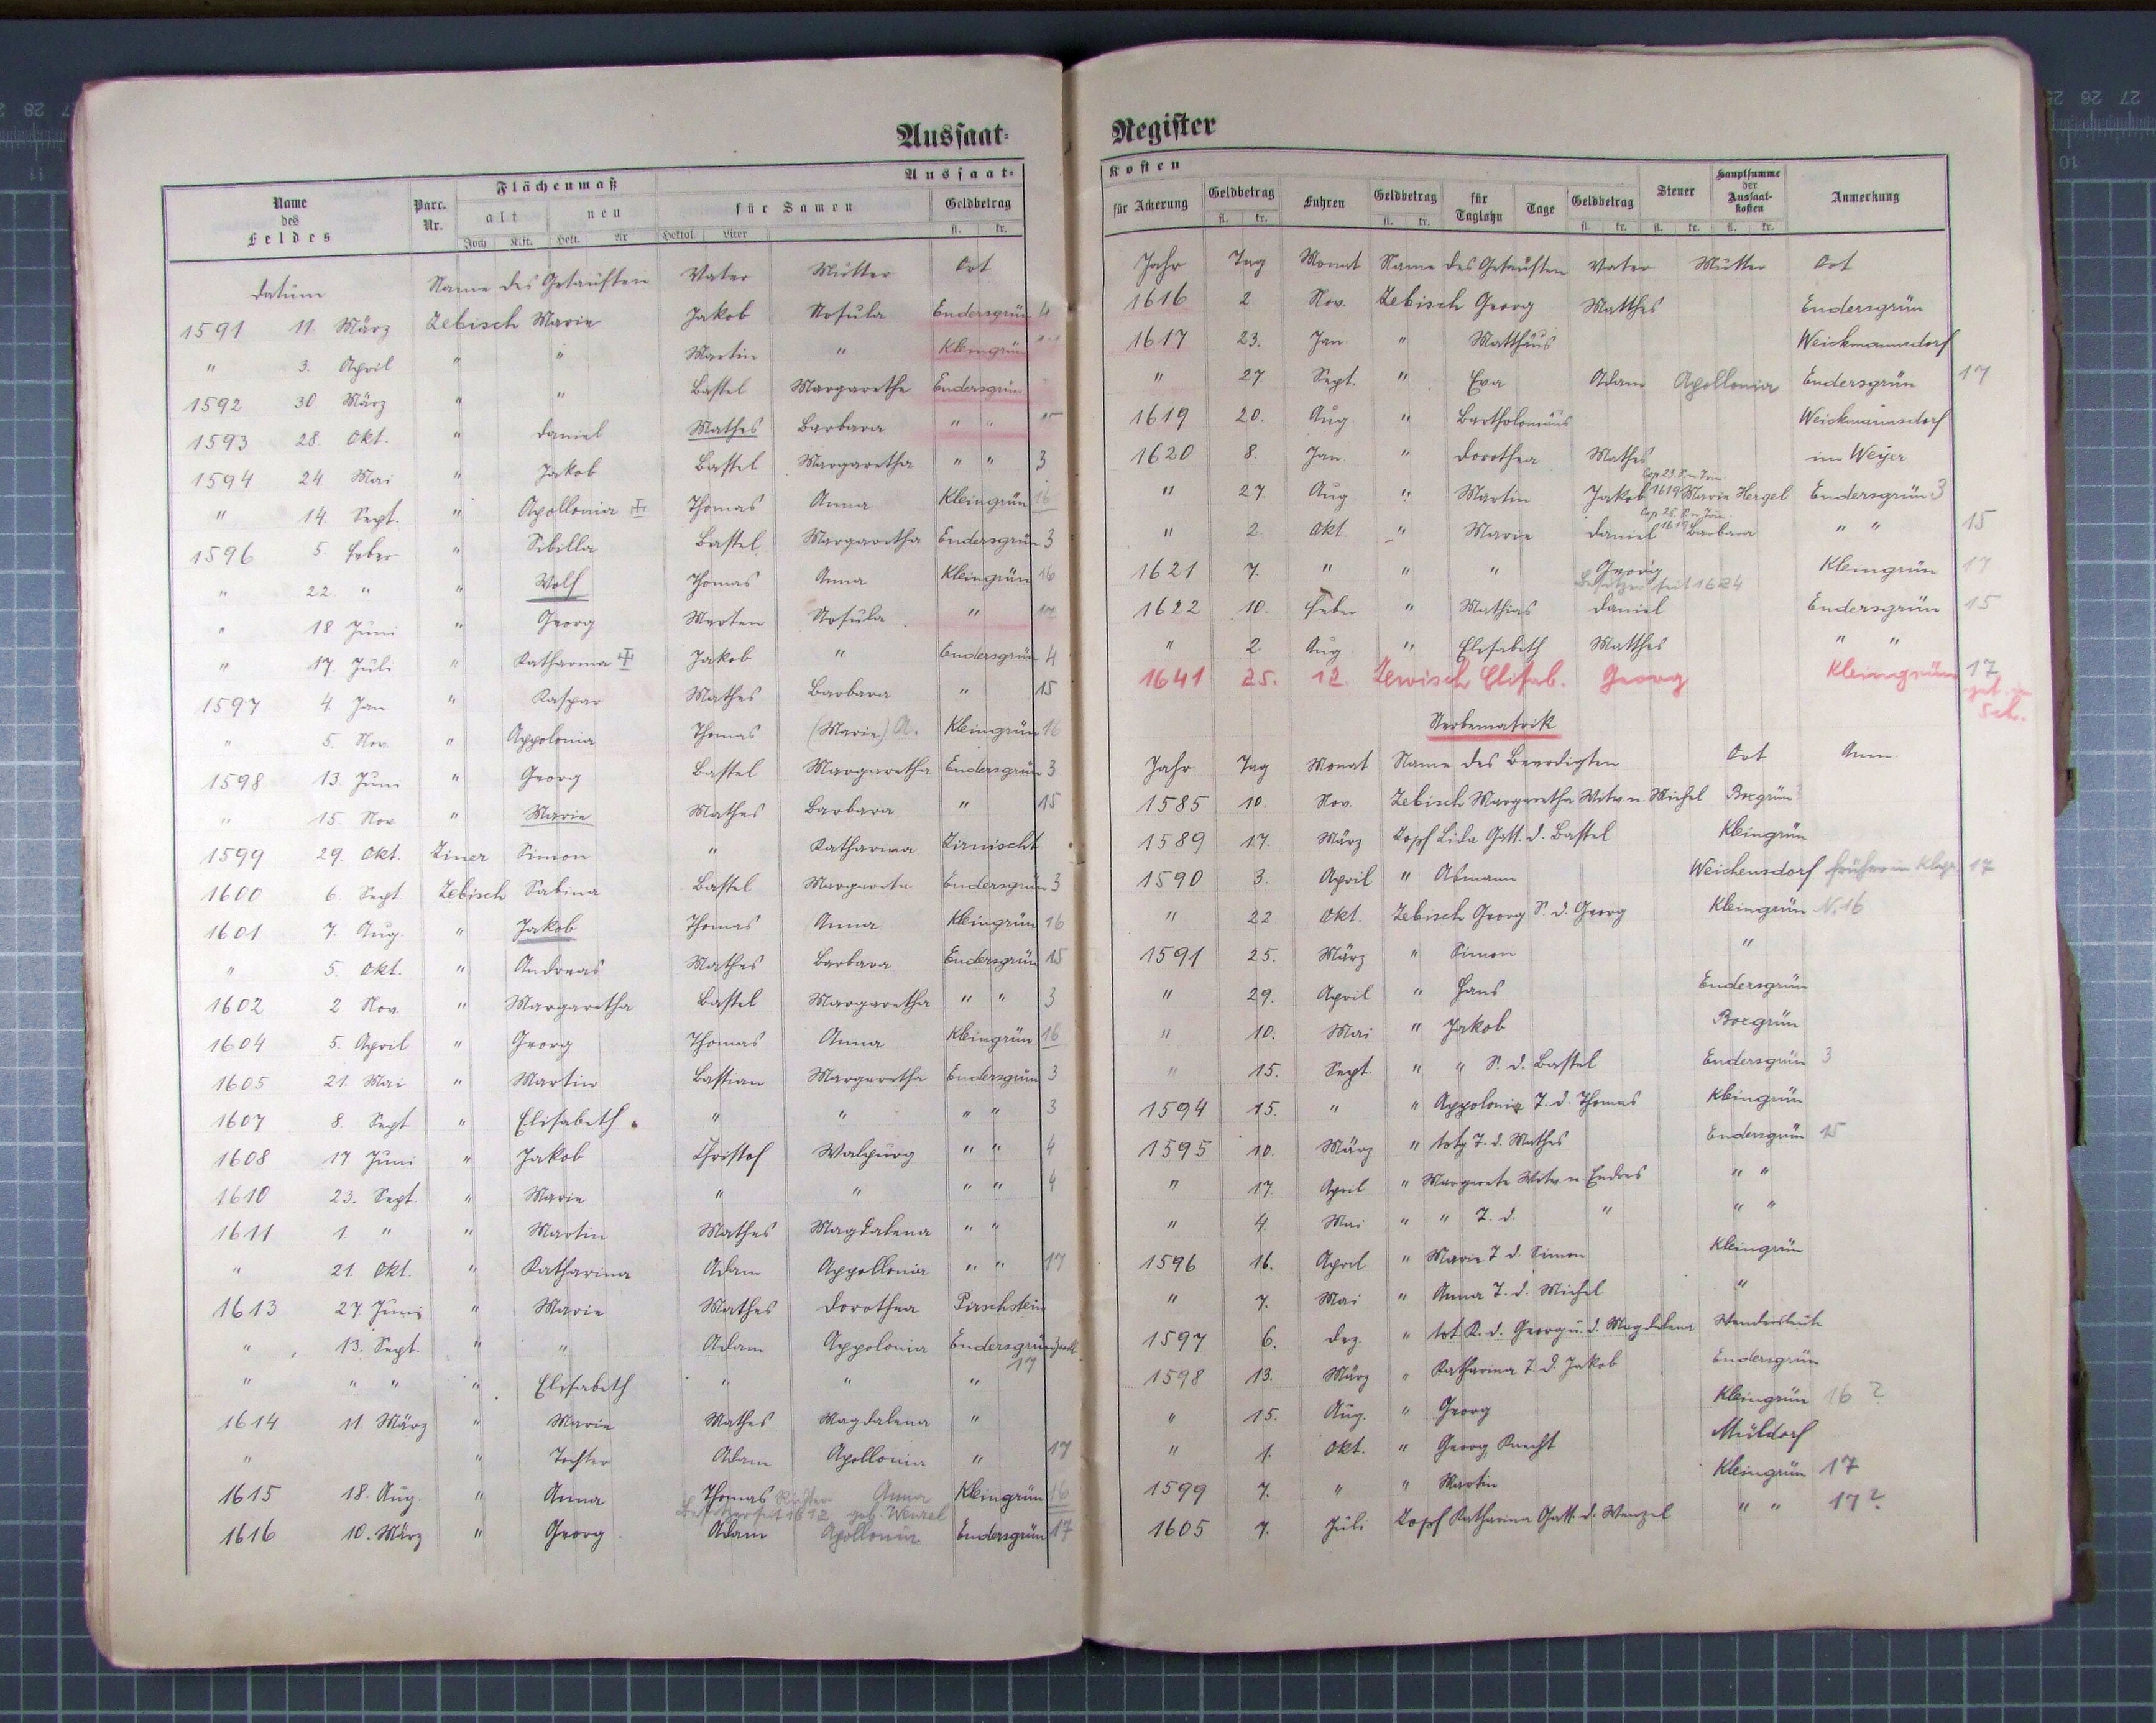 Aussaat-
Name des Feldes Parc. Nr. Flächenmaß Aussaat-
alt neu für Samen Geldbetrag
Joch Klft. Hekt. Ar Hektol. Liter fl. kr.
Datum Name des Getauften Vater Mutter Ort
1591 11. März Zebisch Marie Jakob Ursula Endersgrün 4
" 3. April " " Martin " Kleingrün
1592 30 März " " Bastel Margarethe Endersgrün
1593 28. Okt. " Daniel Mathes Barbara " " 15
1594 24. Mai " Jakob Bastel Margaretha " " 3
" 14. Sept. " Apollonia Thomas Anna Kleingrün 16
1596 5. Feber " Sibilla Bastel Margaretha Endersgrün 3
" 22. " " Wolf Thomas Anna Kleingrün 16
" 18 Juni " Georg Merten Ursula "
" 17. Juli " Katharina Jakob " Endersgrün 4
1597 4. Jan " Kaspar Mathes Barbara " 15
" 5. Nov. " Appolonia Thomas (Marie) A. Kleingrün 16
1598 13. Juni " Georg Bastel Margaretha Endersgrün 3
" 15. Nov " Marie Mathes Barbara " 15
1599 29. Okt. Ziner Simon " Katharina Zirnischt
1600 6. Sept Zebisch Sabina Bastel Margareta Endersgrün 3
1601 7. Aug. " Jakob Thomas Anna Kleingrün 16
" 5. Okt. " Andreas Mathes Barbara Endersgrün 15
1602 2 Nov " Margaretha Bastel Margaretha " " 3
1604 5. April " Georg Thomas Anna Kleingrün 16
1605 21. Mai " Martin Bastian Margaretha Endersgrün 3
1607 8. Sept " Elisabeth " " " " 3
1608 17. Juni " Jakob Christof Walpurg " " 4
1610 23. Sept. " Marie " " " " 4
1611 1. " " Martin Mathes Magdalena " "
" 21. Okt. " Katharina Adam Appollonia " " 17
1613 27. Juni " Marie Mathes Dorothea Pirschstein
" 13. Sept. " " Adam Appolonia Endersgrün
17
" " " " Elisabeth " " "
1614 11. März " Marie Mathes Magdalena "
" " Tochter Adam Apollonia " 17
1615 18. Aug. " Anna Thomas Richter Anna Kleingrün 16
Besitzer seit 1612 geb. Wenzel
1616 10. März " Georg Adam Apollonia Endersgrün 17
Register
Kosten
für Ackerung Geldbetrag Fuhren Geldbetrag für Taglohn Tage Geldbetrag Steuer Hauptsumme der Aussaat-kosten Anmerkung
fl. kr. fl. kr. fl. kr. fl. kr. fl. kr.
Jahr Tag Monat Name des Getauften Vater Mutter Ort
1616 2 Nov. Zebisch Georg Matthes Endersgrün
1617 23. Jan. " Matthäus Weickmannsdorf
" 27 Sept. " Eva Adam Apollonia Endersgrün 17
1619 20. Aug " Bartholomäus Weickmannsdorf
1620 8. Jan. " Dorothea Mathes im Weyer
" 27. Aug. " Martin Jakob 1619 Marie Hergel Endersgrün 3
" 2. Okt. " Marie Daniel 1619 Barbara " " 15
1621 7. " " " Georg Kleingrün 17
Besitzer seit 1624
1622 10. Feber " Mathias Daniel Endersgrün 15
" 2. Aug " Elisabeth Matthes " "
1641 25. 12. Zewisch Elisab. Georg Kleingrün 17
get. in
Sch.
Sterbematrik
Jahr Tag Monat Name des Beerdigten Ort Anm.
1585 10. Nov. Zebisch Margaretha Witw n. Michel Boxgrün
1589 17. März Zopf Lida Gatt. d. Bastel Kleingrün
1590 3. April " Asmann Weichensdorf früher in Klgr. 17
" 22 Okt. Zebisch Georg S. d. Georg Kleingrün N. 16
1591 25. März " Simon "
" 29. April " Hans Endersgrün
" 10. Mai " Jakob Boxgrün
" 15. Sept. " " S. d. Bastel Endersgrün 3
1594 15. " " Appolonia T. d. Thomas Kleingrün
1595 10. März " totg T. d. Mathes Endersgrün 15
" 17 April " Margarete Witw n. Endres " "
" 4. Mai " " T. d. " " "
1596 16. April " Marie T. d. Simon Kleingrün
" 7. Mai " Anna T. d. Michel "
1597 6. Dez. " tot K. d. Georg u. d. Magdalena
1598 13. März " Katharina T. d. Jakob Endersgrün
" 15. Aug. " Georg Kleingrün 16 ?
" 1. Okt. " Georg Knecht Müldorf
1599 7. " " Martin Kleingrün 17
1605 7. Juli Zopf Katharina Gatt. d. Wenzel " " 17?